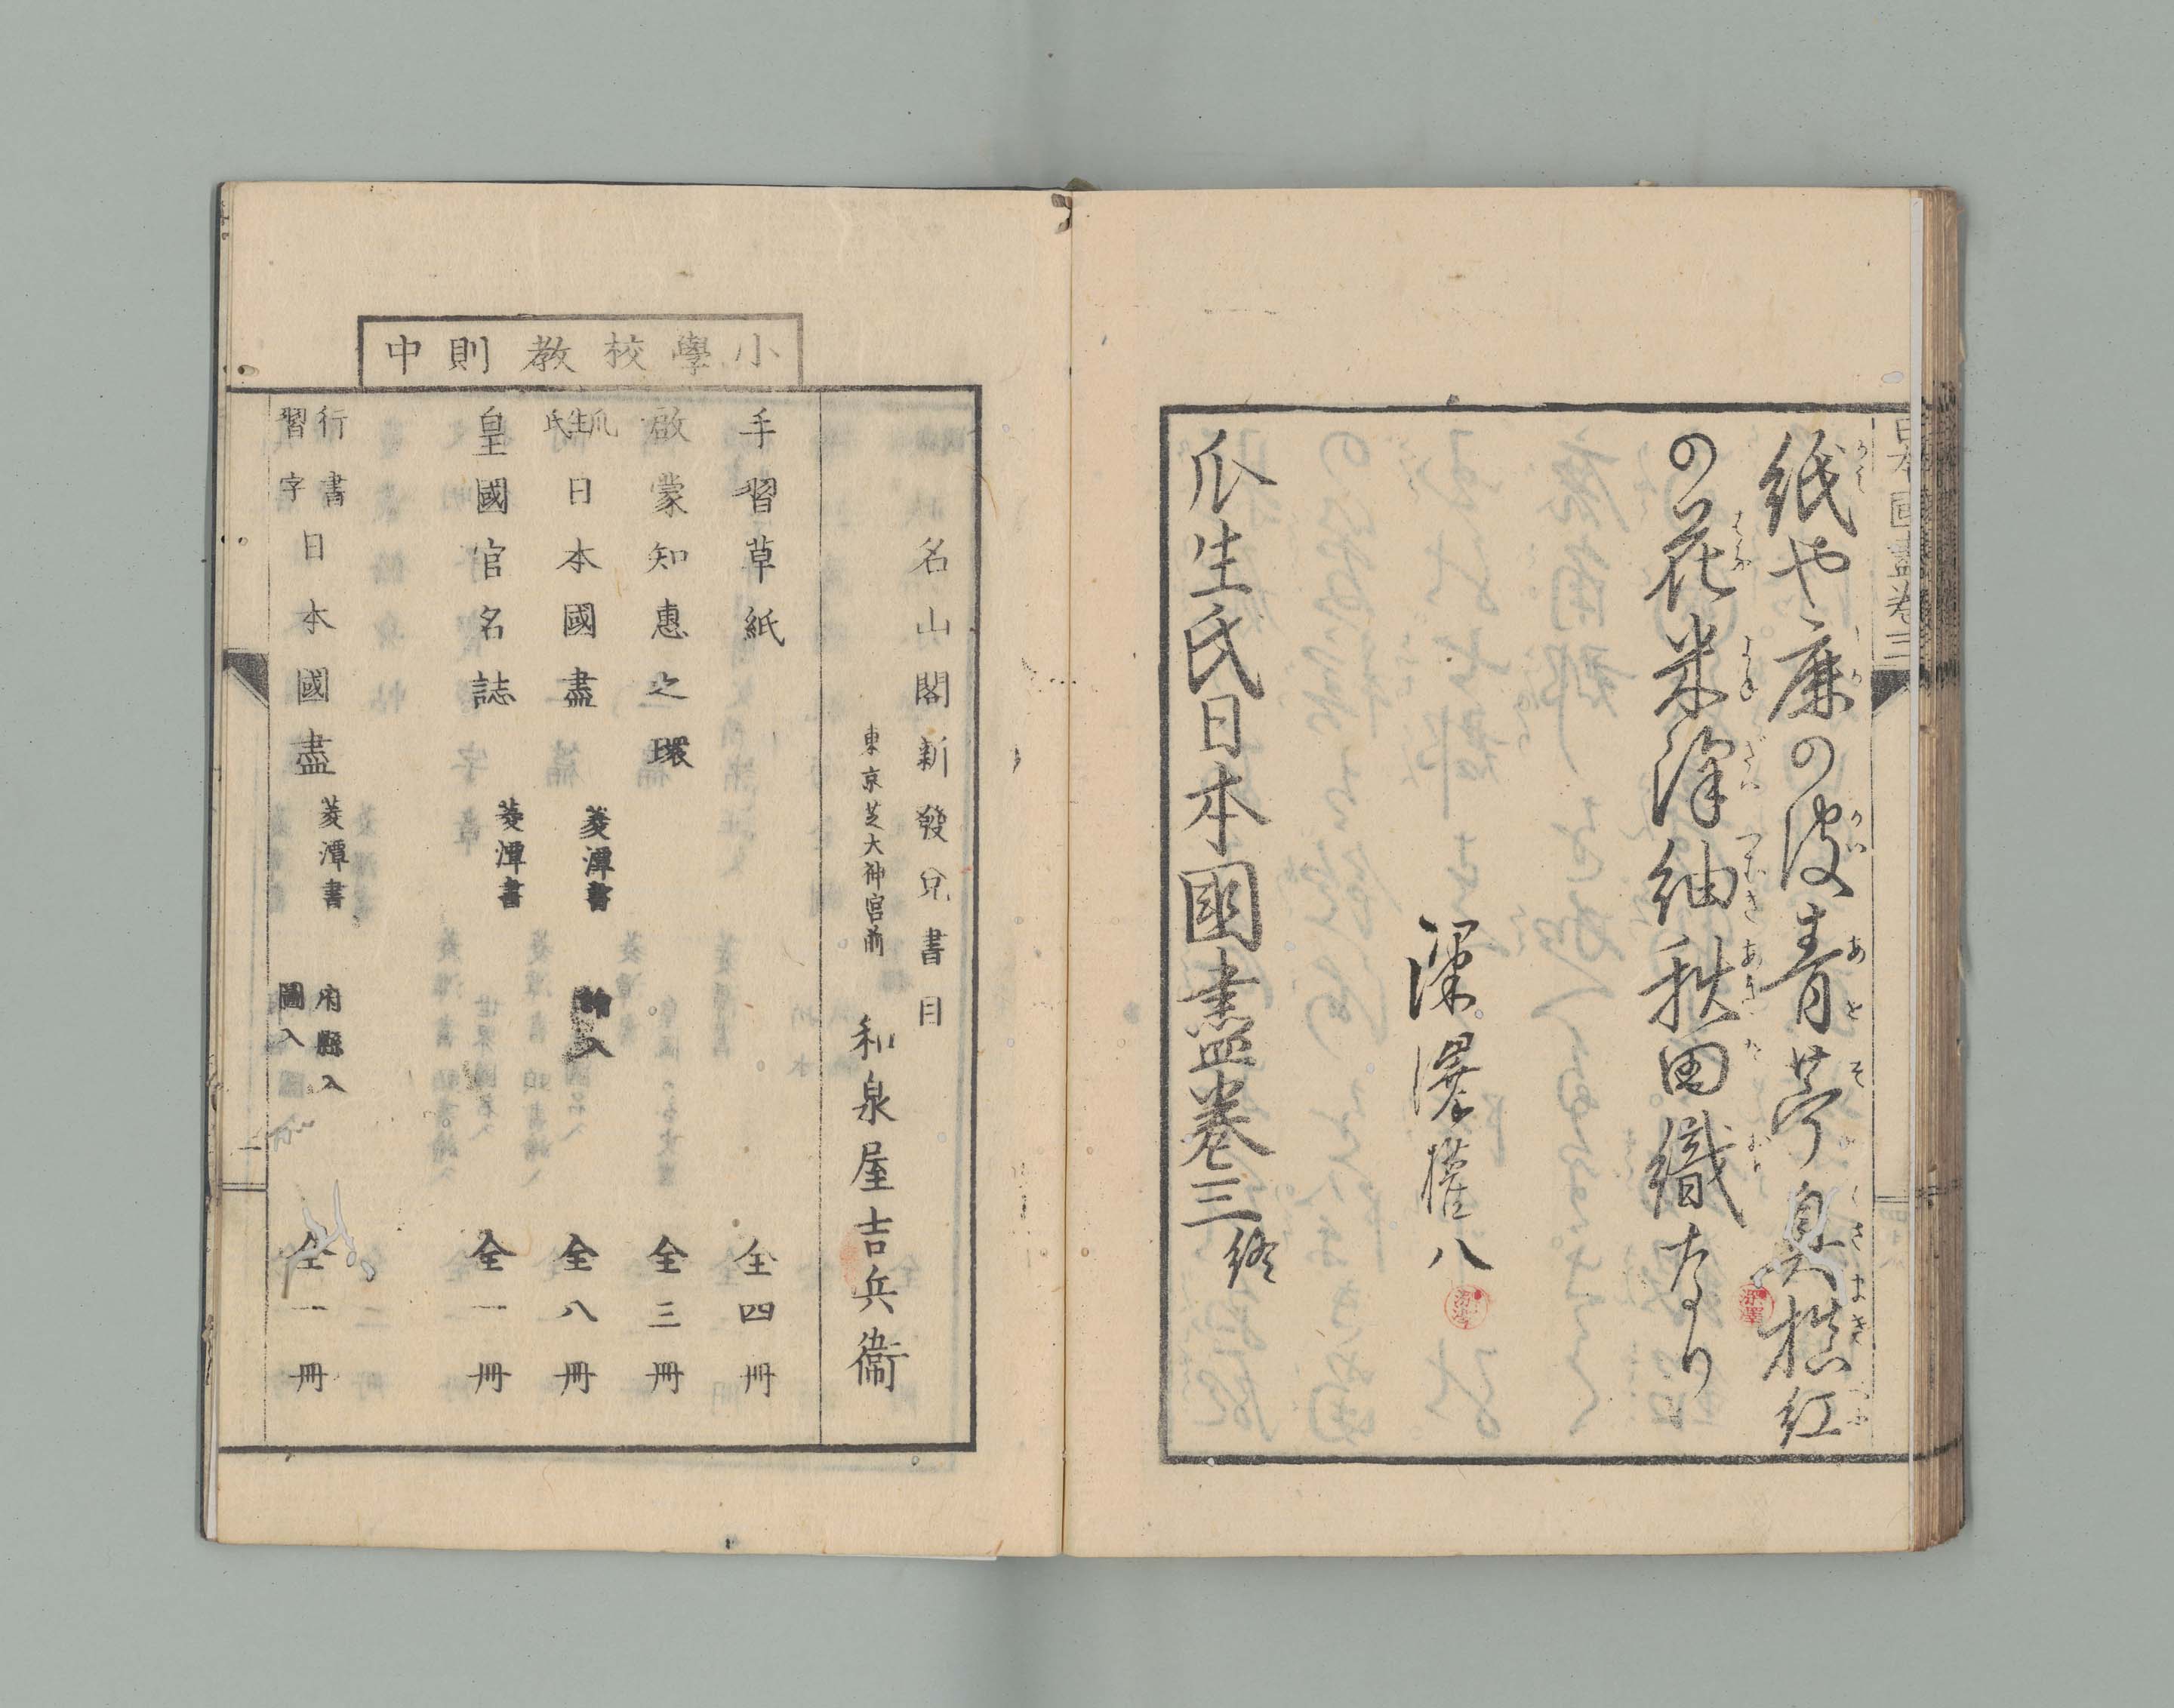 紙や麻の皮青苧臭橙紅
の花米深紬秋田織なり
深澤權八
瓜生氏日本國盡卷三終
日本國盡卷三
小學校教則中
名山閣新發兌書目
東京芝大神宮前 和泉屋吉兵衞
手習草紙 全四冊
啟蒙知惠之環 全三冊
瓜生氏日本國盡 菱潭書 繪入 全八冊
皇國官名誌 菱潭書 全一冊
行書習字日本國盡 菱潭書 府縣入圖入 全一冊